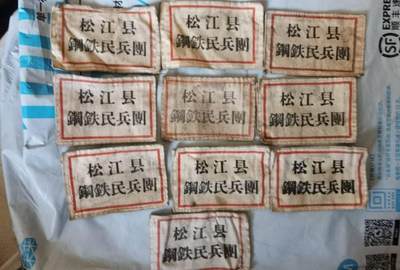 松江县
鋼鉄民兵團
松江县
鋼鉄民兵團
松江县
鋼鉄民兵團
松江县
鋼鉄民兵團
松江县
鋼鉄民兵團
松江县
鋼鉄民兵團
松江县
鋼鉄民兵團
松江县
鋼鉄民兵團
松江县
鋼鉄民兵團
松江县
鋼鉄民兵團
SF
EXPRES